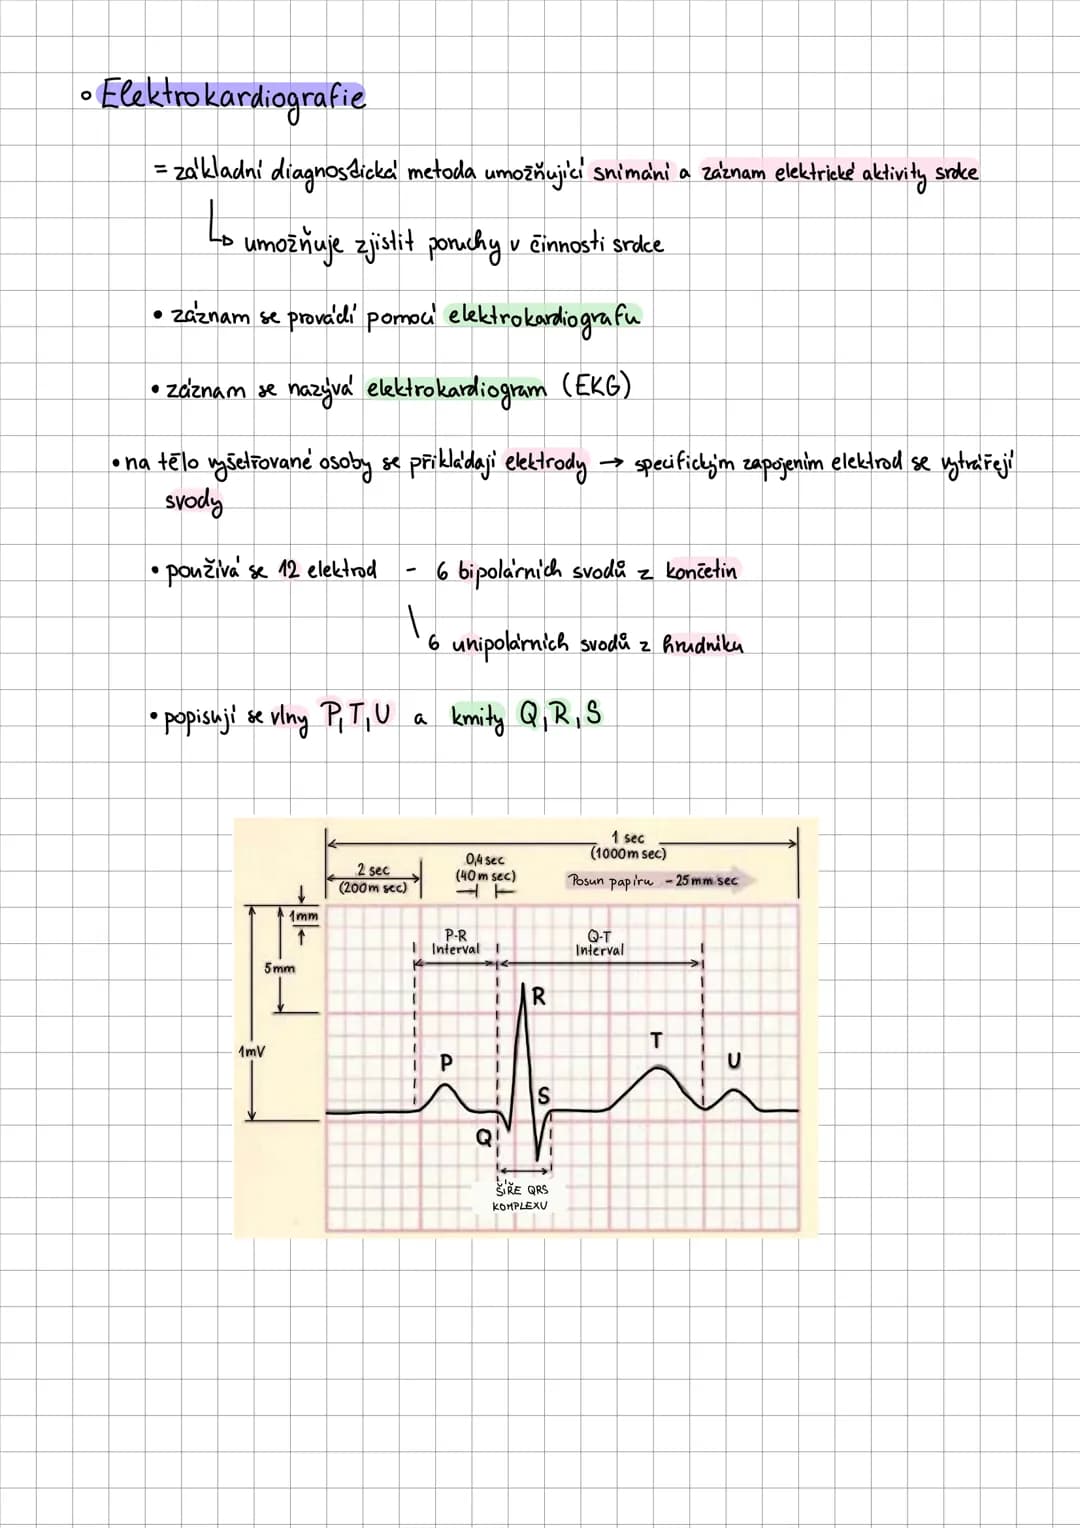 Elektrokardiografie
= základní diagnostická metoda umožňující snímání a záznam elektrické aktivity srdce
umožňuje zjistit poruchy v činnosti srdce
• záznam se provádí pomocí elektrokardiografu
• záznam se nazývá elektrokardiogram (EKG)
• na tělo vyšetřované osoby se přikládají elektrody → specifickým zapojením elektrod se vytvářejí
svody
• používá se 12 elektrod - 6 bipolárních svodů z končetin
6 unipolárních svodů z hrudníku
• popisují se vlny P, T, U a kmity Q, R, S
1 sec
(1000m sec)
2 sec
(200m sec)
0,4 sec
(40m sec)
Posun papíru - 25mm sec
1mm
5mm
1mV
P-R
Interval
Q-T
Interval
R
T
P
U
S
Q
ŠÍŘE QRS
KOMPLEXU